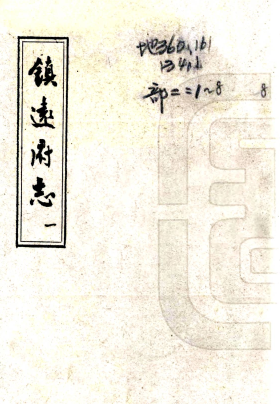 鎮遠府志
一
地360.161
134.1
部二=1~8 8